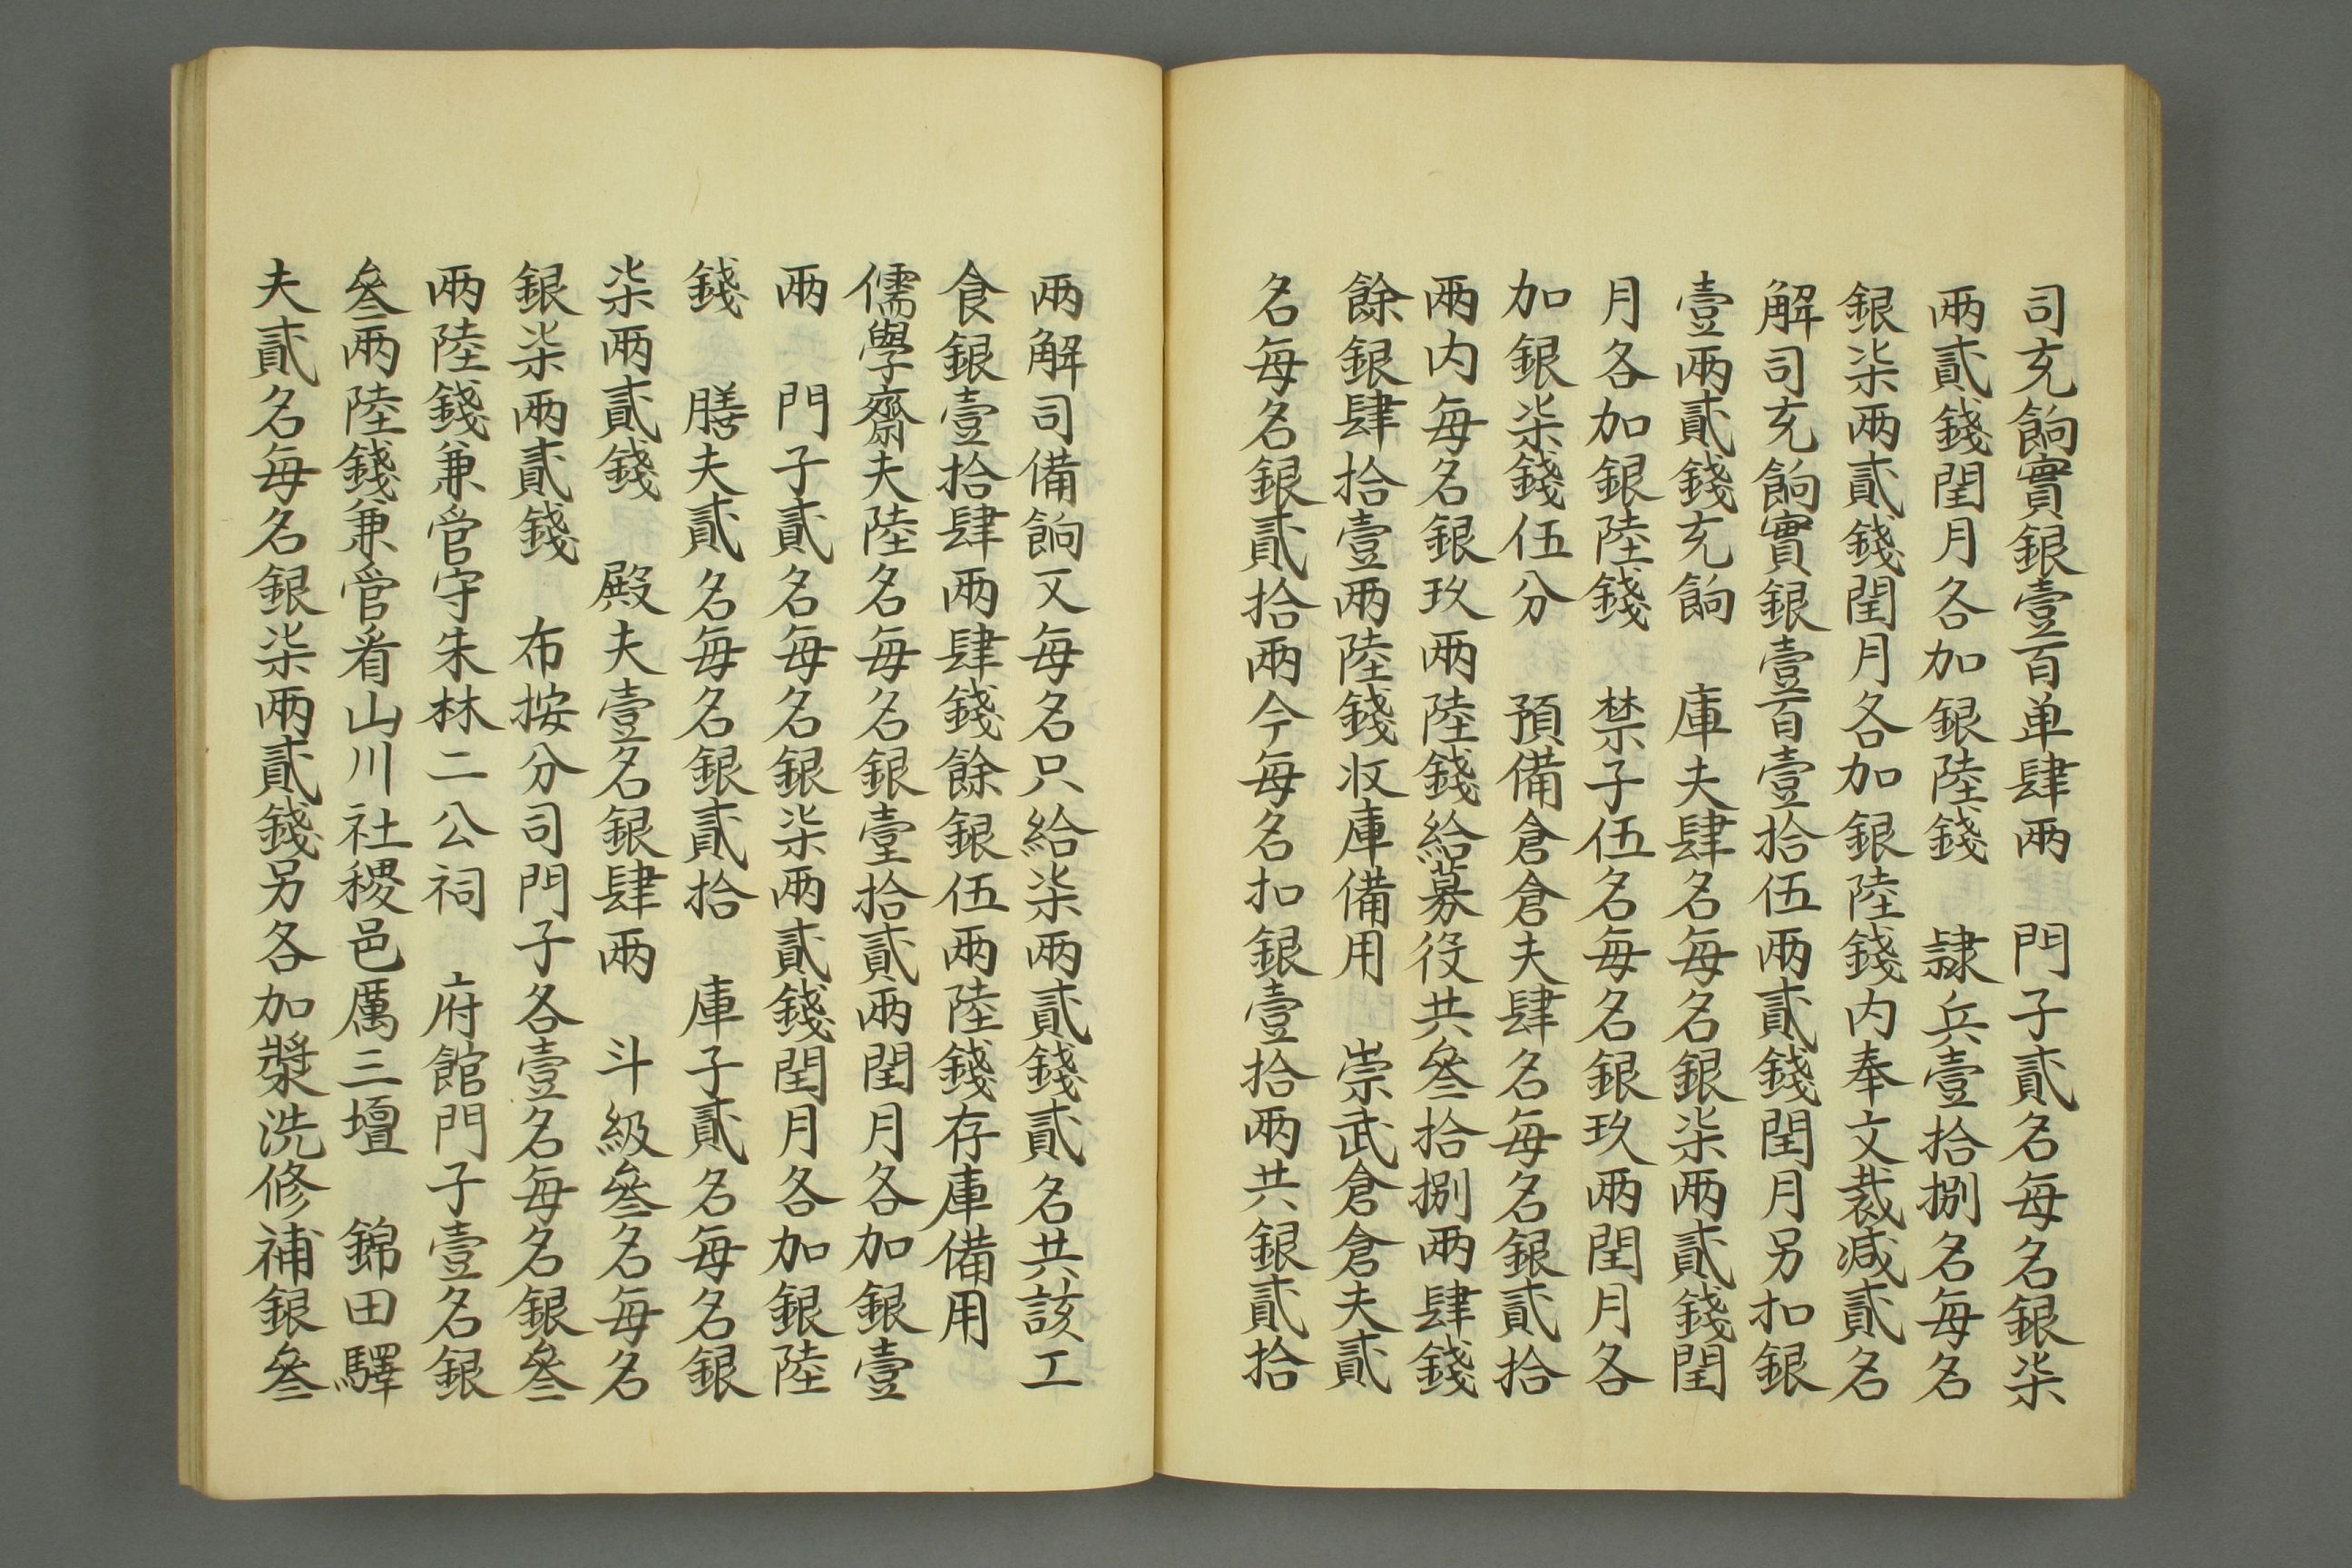 司充餉實銀壹百单肆兩　門子貳名每名銀柒
兩貳錢閏月各加銀陸錢　隷兵壹拾捌名每名
銀柒兩貳錢閏月各加銀陸錢内奉文裁减貳名
解司充餉實銀壹百壹拾伍兩貳錢閏月另扣銀
壹兩貳錢充餉　庫夫肆名每名銀柒兩貳錢閏
月各加銀陸錢　禁子伍名每名銀玖兩閏月各
加銀柒錢伍分　預備倉倉夫肆名每名銀貳拾
兩内每名銀玖兩陸錢給募役共叄拾捌兩肆錢
餘銀肆拾壹兩陸錢收庫備用　崇武倉倉夫貳
名每名銀貳拾兩今每名扣銀壹拾兩共銀貳拾
兩解司備餉又每名只給柒兩貳錢貳名共該工
食銀壹拾肆兩肆錢餘銀伍兩陸錢存庫備用
儒學齋夫陸名每名銀壹拾貳兩閏月各加銀壹
兩　門子貳名每名銀柒兩貳錢閏月各加銀陸
錢　膳夫貳名每名銀貳拾　庫子貳名每名銀
柒兩貳錢　殿夫壹名銀肆兩　斗級叄名每名
銀柒兩貳錢　布按分司門子各壹名每名銀叄
兩陸錢兼管守朱林二公祠　府館門子壹名銀
叄兩陸錢兼管看山川社稷邑厲三壇　錦田驛
夫貳名每名銀柒兩貳錢另各加漿洗修補銀叄